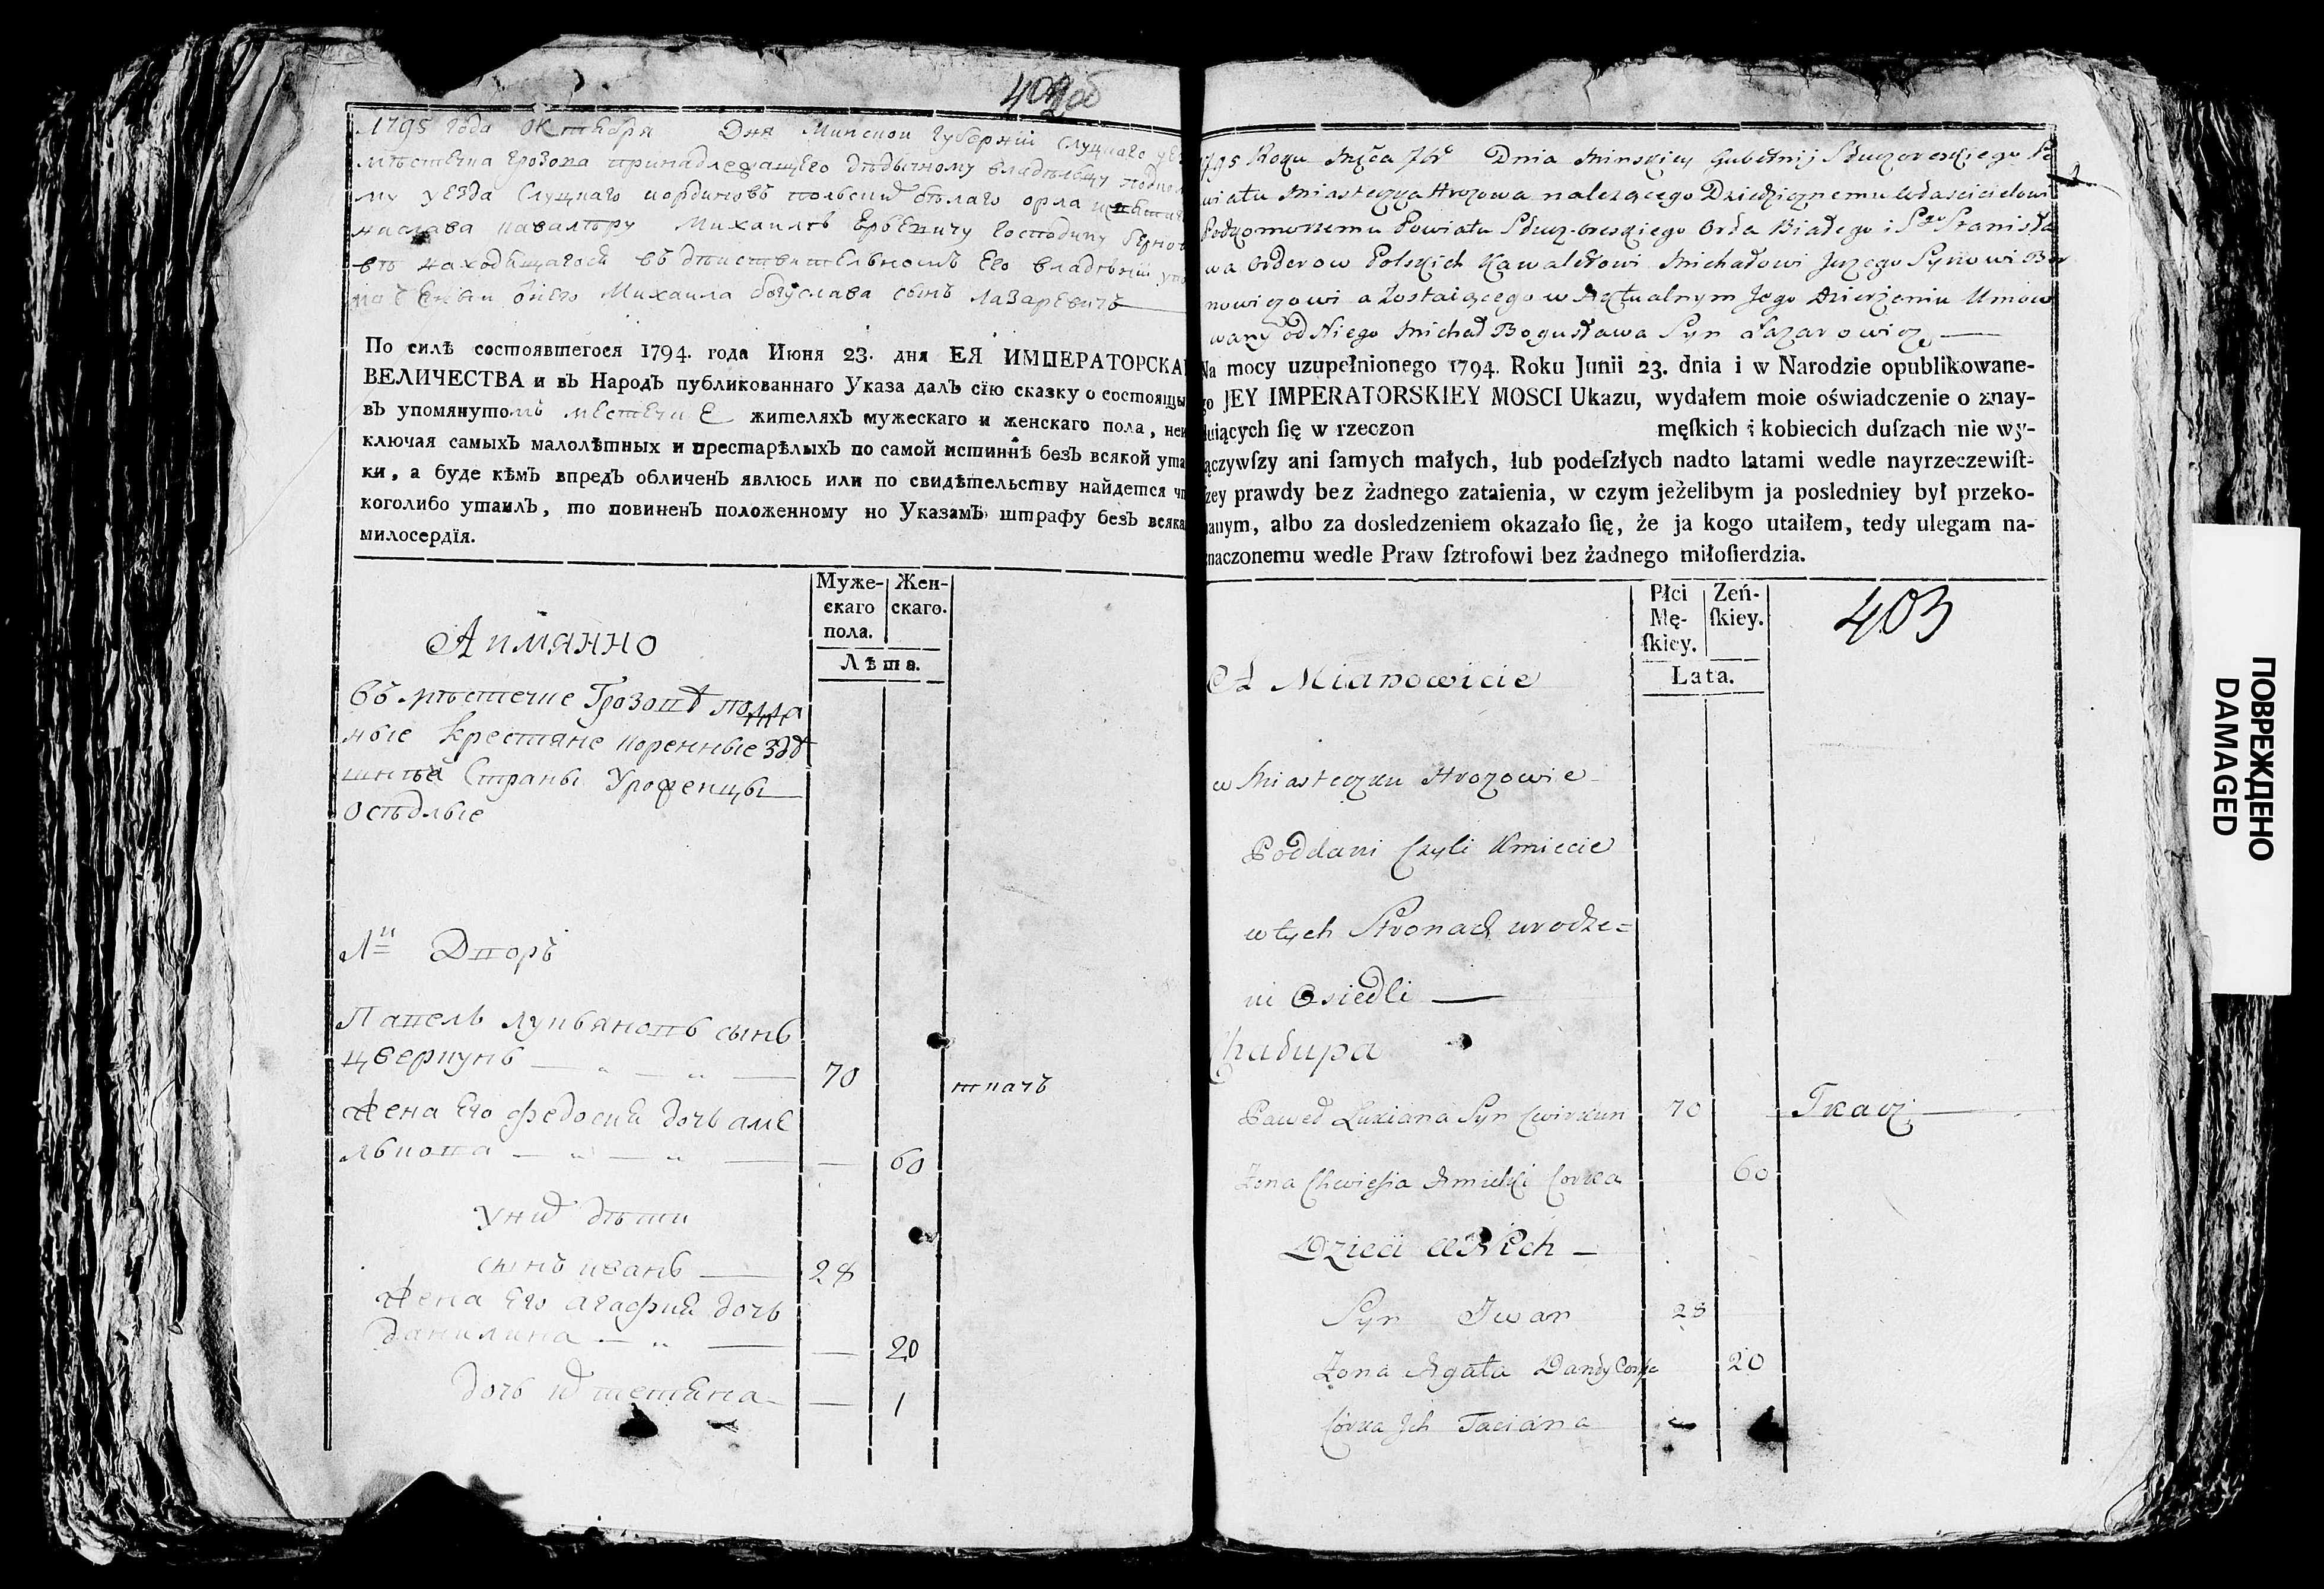 402об
1795 года октября Дня Минской Губернии Слуцкаго
мѣстечка Грозова принадлежащего дѣдычному владѣльцу
му уезда Слуцкаго и ординовъ польских бѣлаго орла и
нислава кавалеру Михаилѣ Ерьевичу Господину
въ находящагося въ дѣйствительномъ Его владѣнии
онего Михаила богуслава сынъ Лазаревичъ
По силѣ состоявшегося 1794. года Июня 23. дня ЕЯ ИМПЕРАТОРСКА
ВЕЛИЧЕСТВА и въ Народъ публикованнаго Указа далъ сію сказку о состоящи
въ упомянутомъ местечке жителяхъ мужескаго и женскаго пола, неи
ключая самыхъ малолѣтных и престарѣлыхъ по самой истиннѣ безъ всякой ута
ки, а буде кѣмъ впредъ обличенъ явлюсь или по свидѣтельству найдется чт
коголибо утаилъ, то повиненъ положенному по Указамъ штрафу безъ всяка
милосердія.
Муже- Жен-
скаго скаго.
пола.
Лѣта.
А имянно
въ мѣстечке Грозовѣ подда
ные крестяне коренные здѣ
шнѣй Страны Уроженцы
осѣдлые
Дворъ
Павелъ лукьяновъ сынъ
цверкунъ 70 ткачъ
Жена Его федосия дочь аме
льнова 60
У них дѣти
сынъ иванъ 28
Жена Его агафия дочь
данилина 20
дочь их тетяна 1
1795 Roku Mca 7br Dnia Minskiey Gubernij Słuczoreskiego Po
wiatu Miasteczka Hrozowa należącego Dziedzicznemu Właścicielowi
Podkomorzemu Powiatu Słuz-oreskiego Orła Białego i Sgo Stanisła
wa Orderow Polskich Kawalerowi Michałowi Jerzego Synowi Ber
nowiczowi a Zostaiącego w Aktualnym Jego Dzierżeniu Umoco
wany od Niego Michał Bogusława Syn Łazarowicz
Na mocy uzupełnionego 1794. Roku Junii 23. dnia i w Narodzie opublikowane-
go JEY IMPERATORSKIEY MOSCI Ukazu, wydałem moie oświadczenie o znay-
duiących ſię w rzeczon męſkich i kobiecich duſzach nie wy-
łączywſzy ani ſamych małych, łub podeſzłych nadto latami wedle nayrzeczewiſt-
zey prawdy bez żadnego zataienia, w czym jeżelibym ja posledniey był przeko-
nanym, albo za dosledzeniem okazało ſię, że ja kogo utaiłem, tedy ulegam na-
znaczonemu wedle Praw ſztrofowi bez żadnego miłoſierdzia.
Płci Zeń-
Mę- ſkiey.
ſkiey.
Lata.
403
A Mianowicie
w Miasteczku Hrozowie
Poddani Czyli Kmiecie
w tych Stronach urodze=
ni Osiedli
Chałupa
Paweł Łukiana Syn Cwirkun 70 Tkacz
Zona Chwiesia Amielki Corka 60
Dzieci u Nich
Syn Iwan 28
Zona Agata Daniły Corka 20
Córka Jch Taciana
ПОВРЕЖДЕНО
DAMAGED